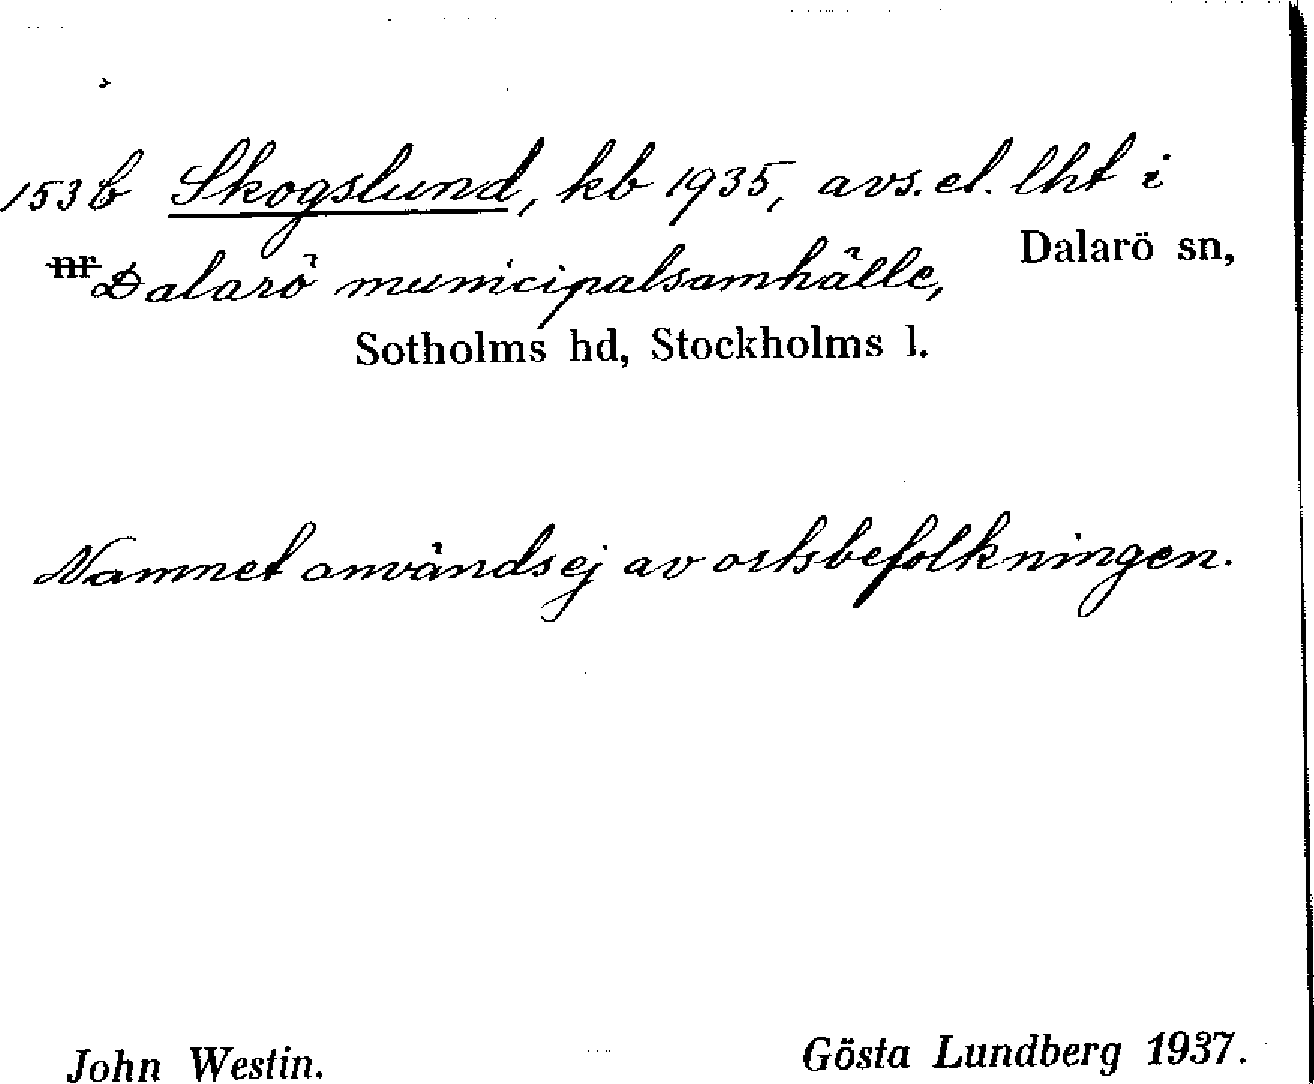 153b Skogslund, kb 1935, avs. el. lht i
nr Dalarö municipalsamhälle, Dalarö sn,
Sotholms hd, Stockholms l.
Namnet användes ej av ortsbefolkningen.
John Westin. Gösta Lundberg 1937.